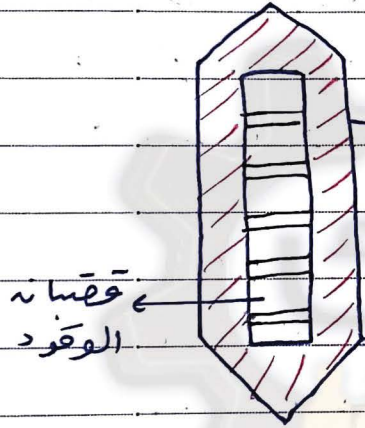 قضبان
الوقود